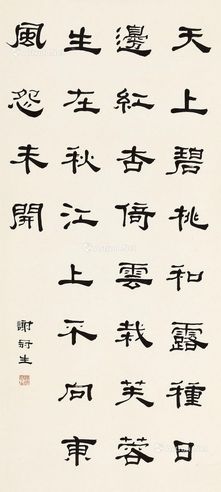 天上碧桃和露種日
邊紅杏倚雲栽芙蓉
生在秋江上不向東
風怨未開
謝生